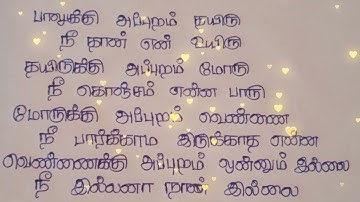 பாலுக்கு அப்புறம் தயிரு
நீ தான் என் உயிரு
தயிருக்கு அப்புறம் மோரு
நீ கொஞ்சம் என்ன பாரு
மோருக்கு அப்புறம் வெண்ணை
நீ பார்க்காம இருக்காத என்ன
வெண்ணைக்கு அப்புறம் ஒன்னும் இல்லை
நீ இல்லனா நான் இல்லை